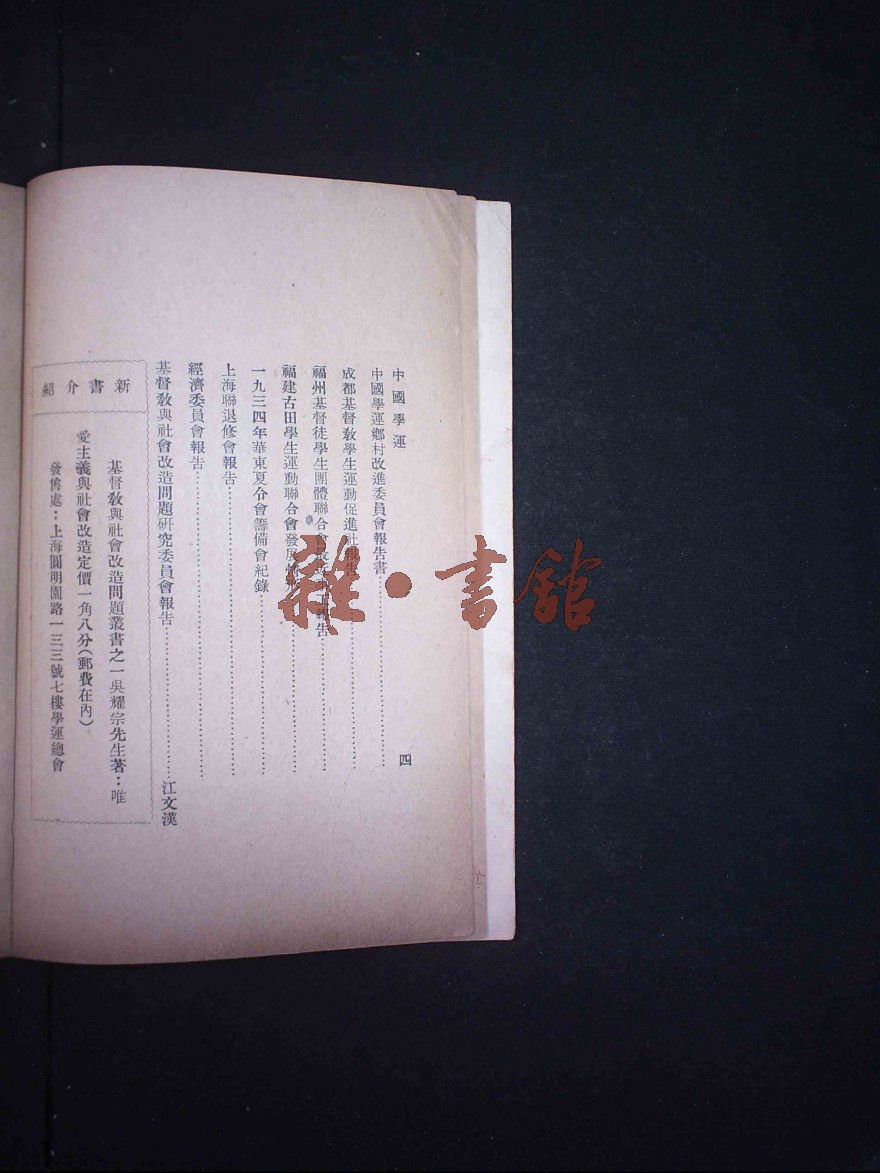 中國學運
四
中國學運鄉村改進委員會報告書
成都基督教學生運動促進社報告
福州基督徒學生團體聯合會報告
福建古田學生運動聯合會發展
一九三四年華東夏令會籌備會紀錄
上海聯退修會報告
經濟委員會報告
基督教與社會改造問題研究委員會報告 江文漢
新書介紹
基督教與社會改造問題叢書之一吳耀宗先生著：唯
愛主義與社會改造定價一角八分（郵費在內）
發售處：上海圓明園路一三三號七樓學運總會
雜·書館